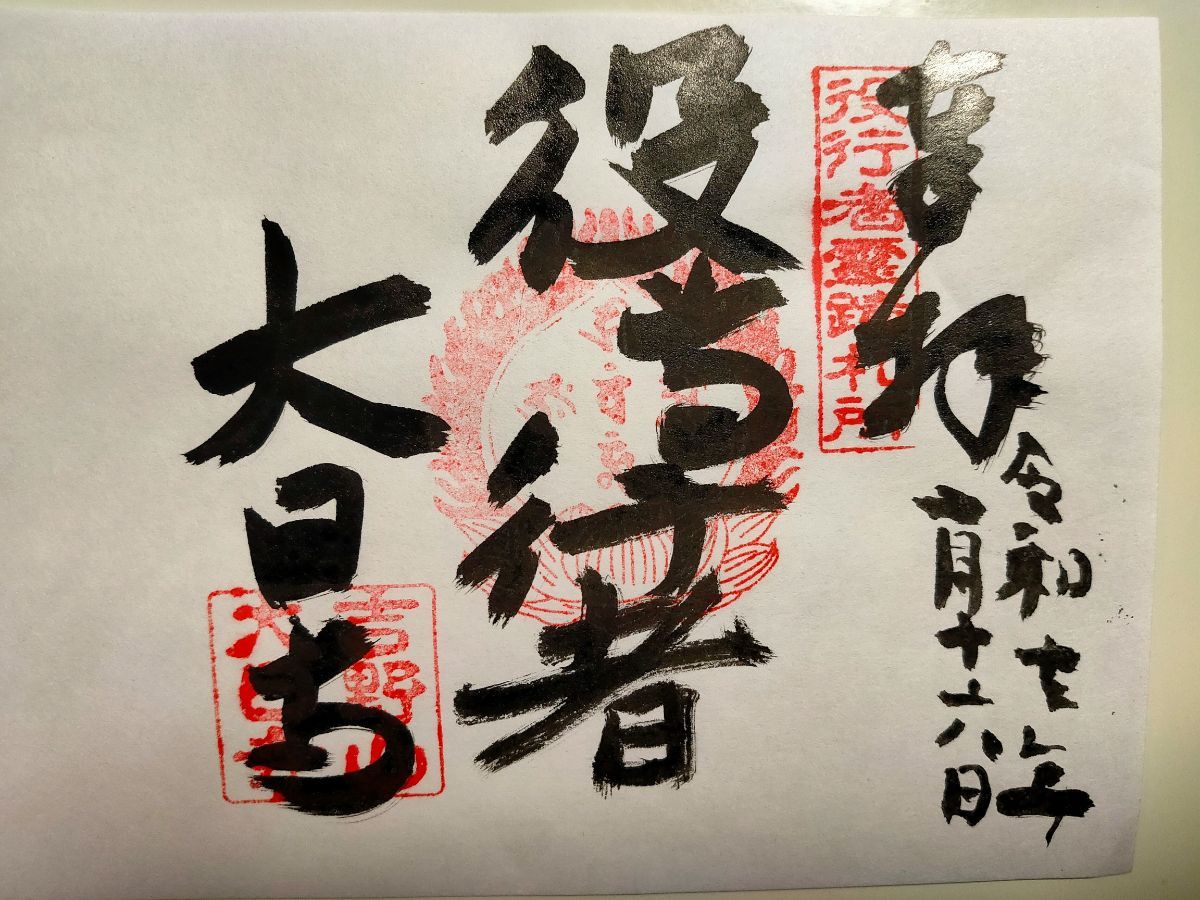 奉拝
役行者霊蹟札所
令和元年
月十六日
役行者
大日寺
吉野山
大日寺